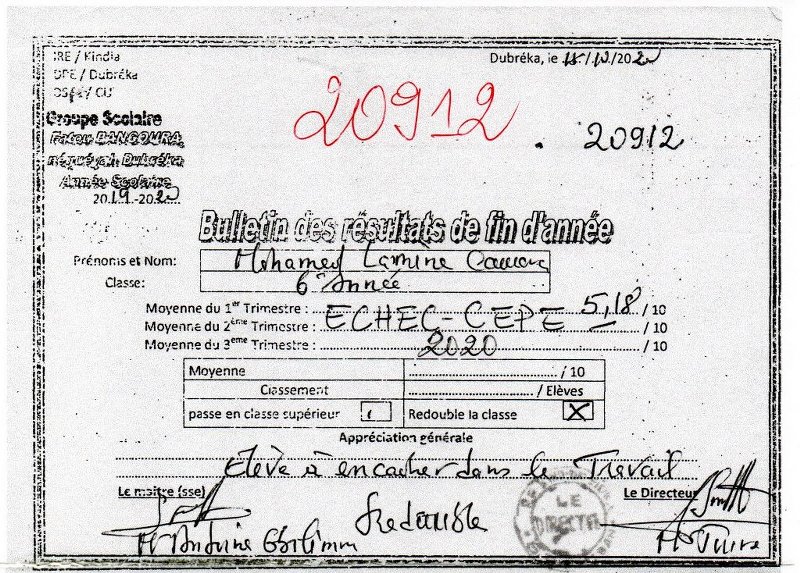 IRE / Kindia
DPE / Dubréka
Dubréka, le 15/10/2020
20912
20912
Groupe Scolaire
Fatou BANGOURA
Dubréka
Année Scolaire
2019-2020
Bulletin des résultats de fin d'année
Prénoms et Nom: Mohamed Lamine Camara
Classe: 6e Année
Moyenne du 1er Trimestre : 5,18 / 10
Moyenne du 2ème Trimestre : ECHEC-CEPE / 10
Moyenne du 3eme Trimestre : 2020 / 10
Moyenne / 10
Classement / Elèves
passe en classe supérieur
Redouble la classe X
Appréciation générale
Elève à encadrer dans le Travail
Le maitre (sse)
Le Directeur
Redouble
LE
Mr Antoine